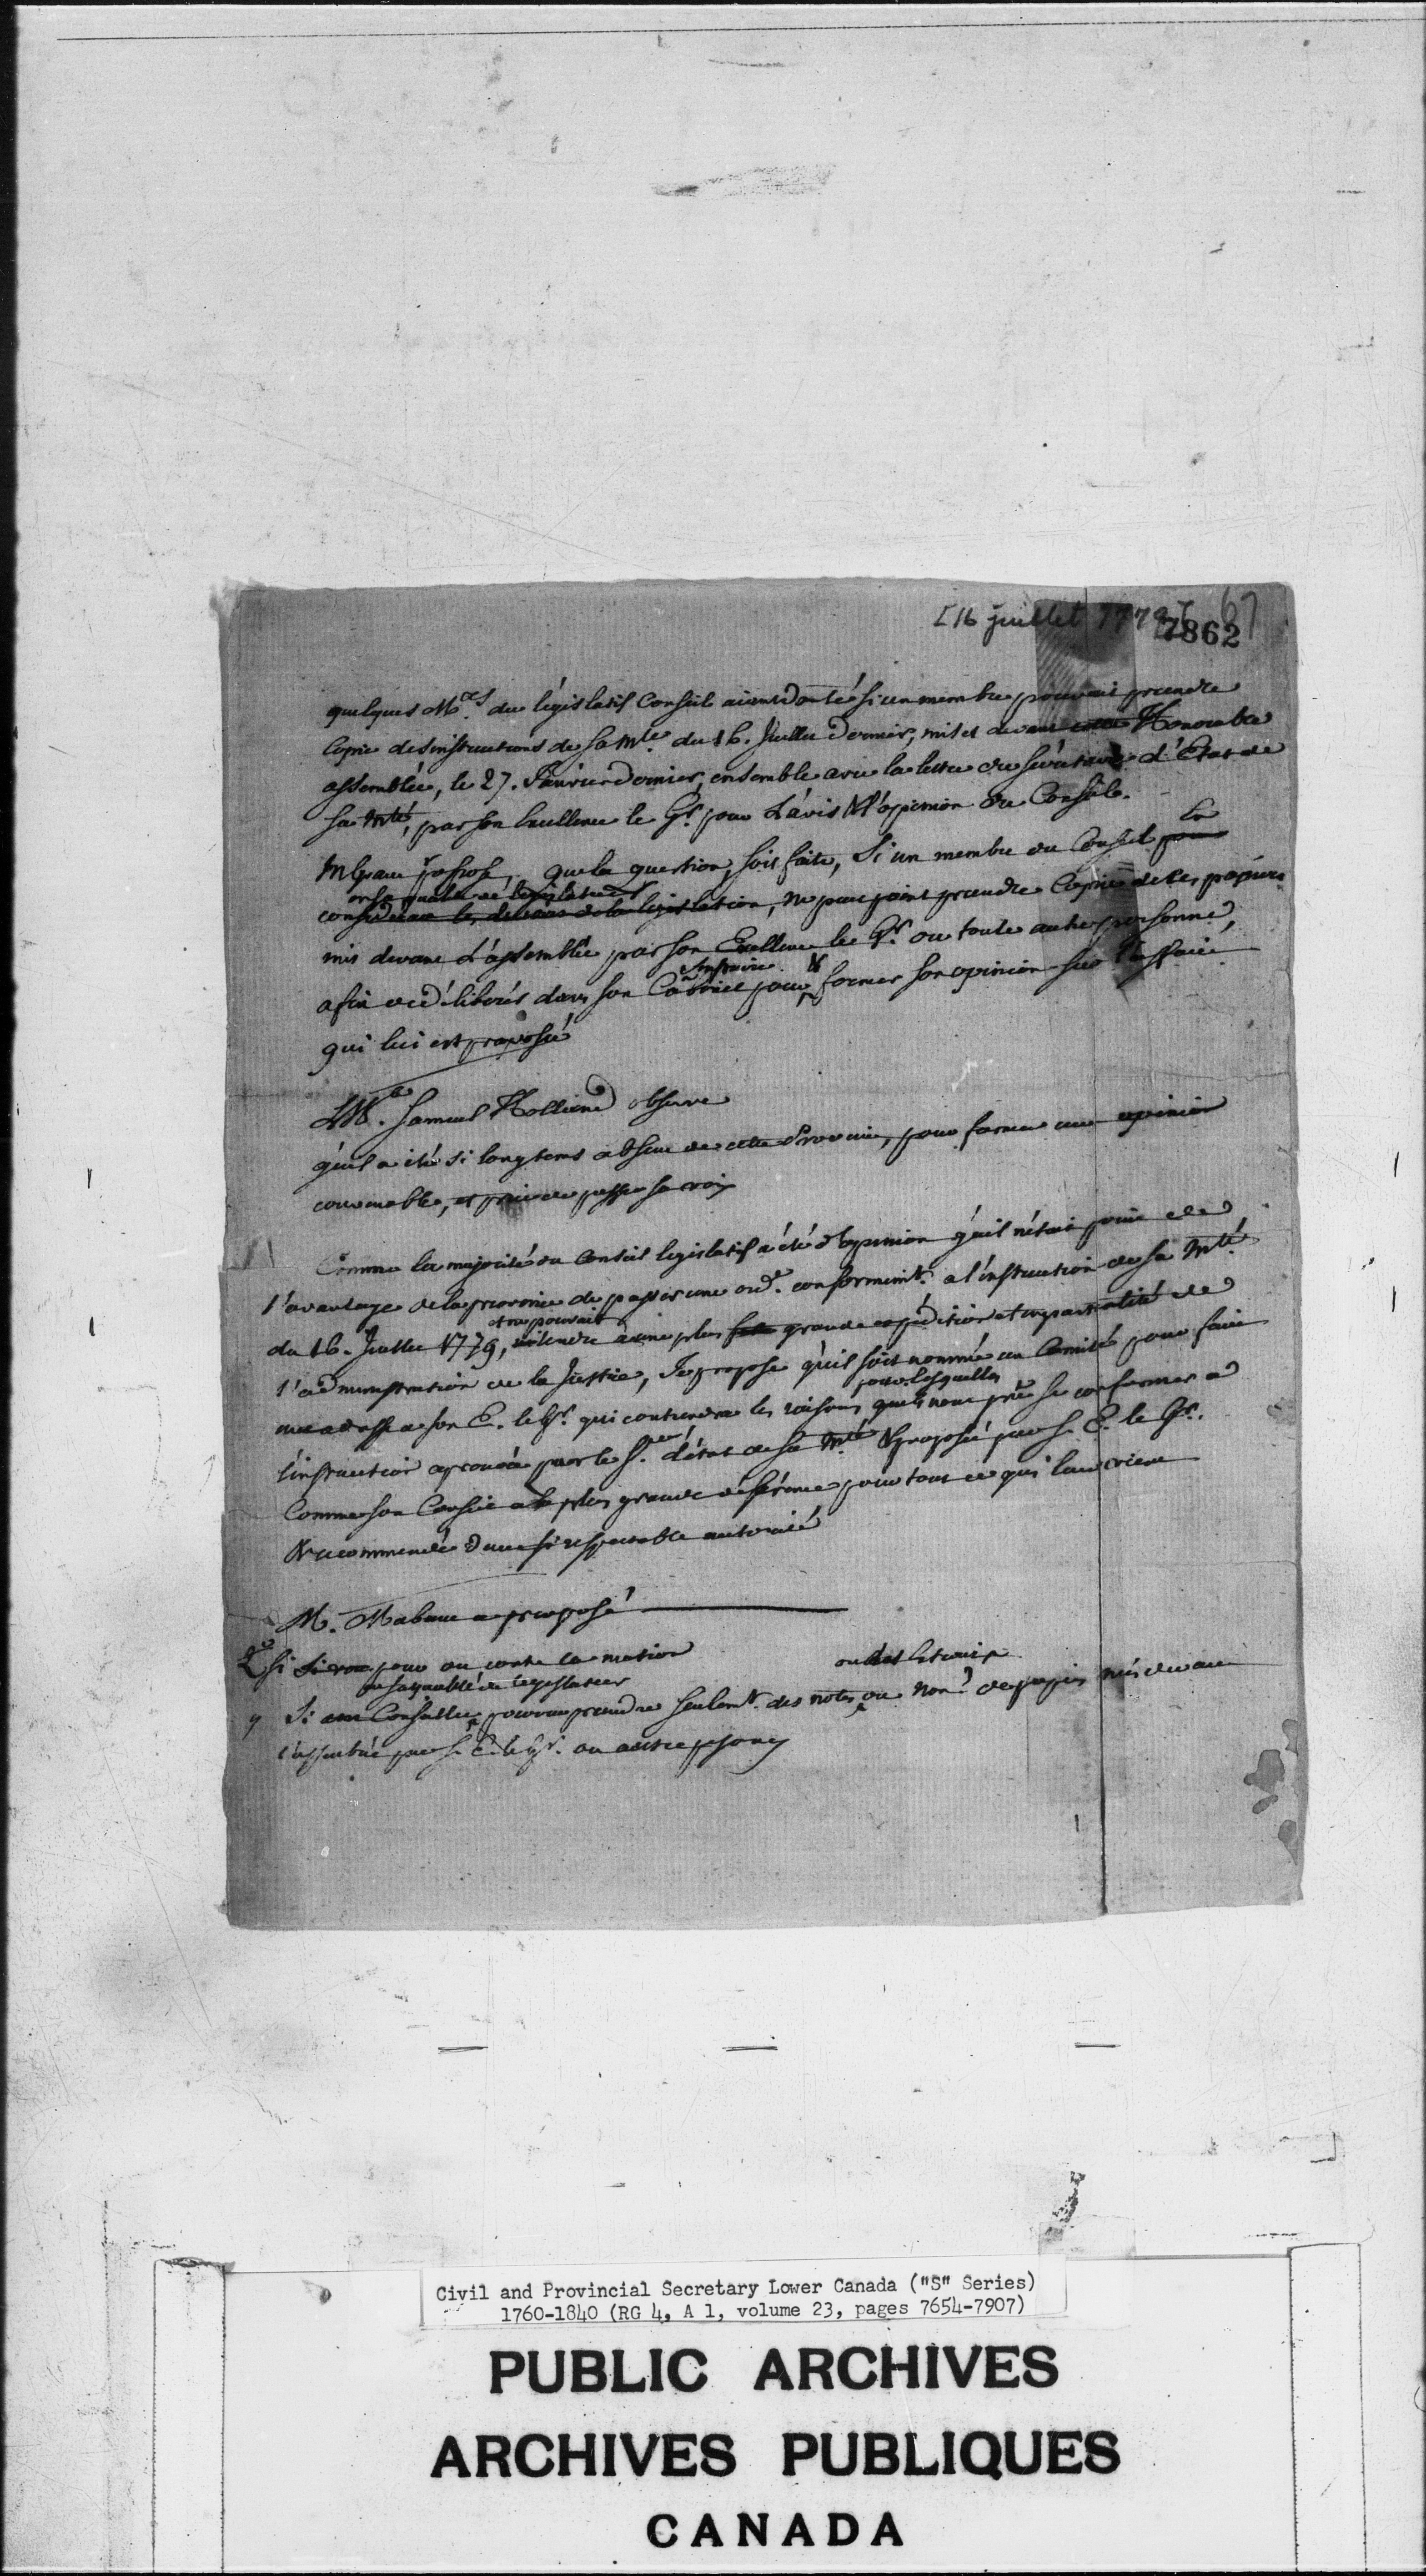 [16 juillet 1779] 67
7862
quelques Mrs. du législatif Conseil aiant douté si un membre pouvait prendre
Copie des instructions de sa Mté. du 16. Juillet dernier, mises devant cette Honorable
assemblée, le 27. Janvier dernier, ensemble avec la lettre du secrétaire d'Etat de
sa Mté, par son Excellence le Gr. pour L'avis & l'opinion du Conseil.
propose, que la question soit faite, Si un membre du Conseil en
en sa qualité de législateur
considerant les de la legislation, ne peut point prendre Copie de les papiers
mis devant L'assemblée par son Excellence le Gr. ou toute autre personne,
s'instruire &
afin de délibérer dans son Cabinet pour former son opinion sur l'affaire
qui lui est proposé
Samuel Holland observe
qu'il a été si longtems absent de cette Province, pour former une opinion
convenable, et prie de passer sa voix
Comme la majorité du Conseil legislatif a été d'opinion qu'il n'étoit point de
l'avantage de la province de passer une ordce. conformémt. a l'instruction de sa Mté.
et ne pouvait
du 16. Juillet 1779, tendre a une plus grande expédition et impartialité de
l'administration de la Justice, Je propose qu'il soit nommé un Comité pour faire
pour lesquelles
une adresse a son E. le Gr. qui contiendra les raisons se conformer a
l'instruction aprouvée par le d'état de sa Mté & proposée par S. E. le Gr.
Comme son Conseil a la plus grande déférence pour tout ce qui leur vient
& recommendé d'une si respectable autorité
M. Mabane a proposé
Si pour ou contre la motion
en sa qualité de législateur ou des Extraits
Si un Conseiller pouvait prendre seulemt. des notes ou non de papiers mis devant
l'assemblée par S. E. le Gr. ou autre
Civil and Provincial Secretary Lower Canada ("S" Series)
1760-1840 (RG 4, A 1, volume 23, pages 7654-7907)
PUBLIC ARCHIVES
ARCHIVES PUBLIQUES
CANADA